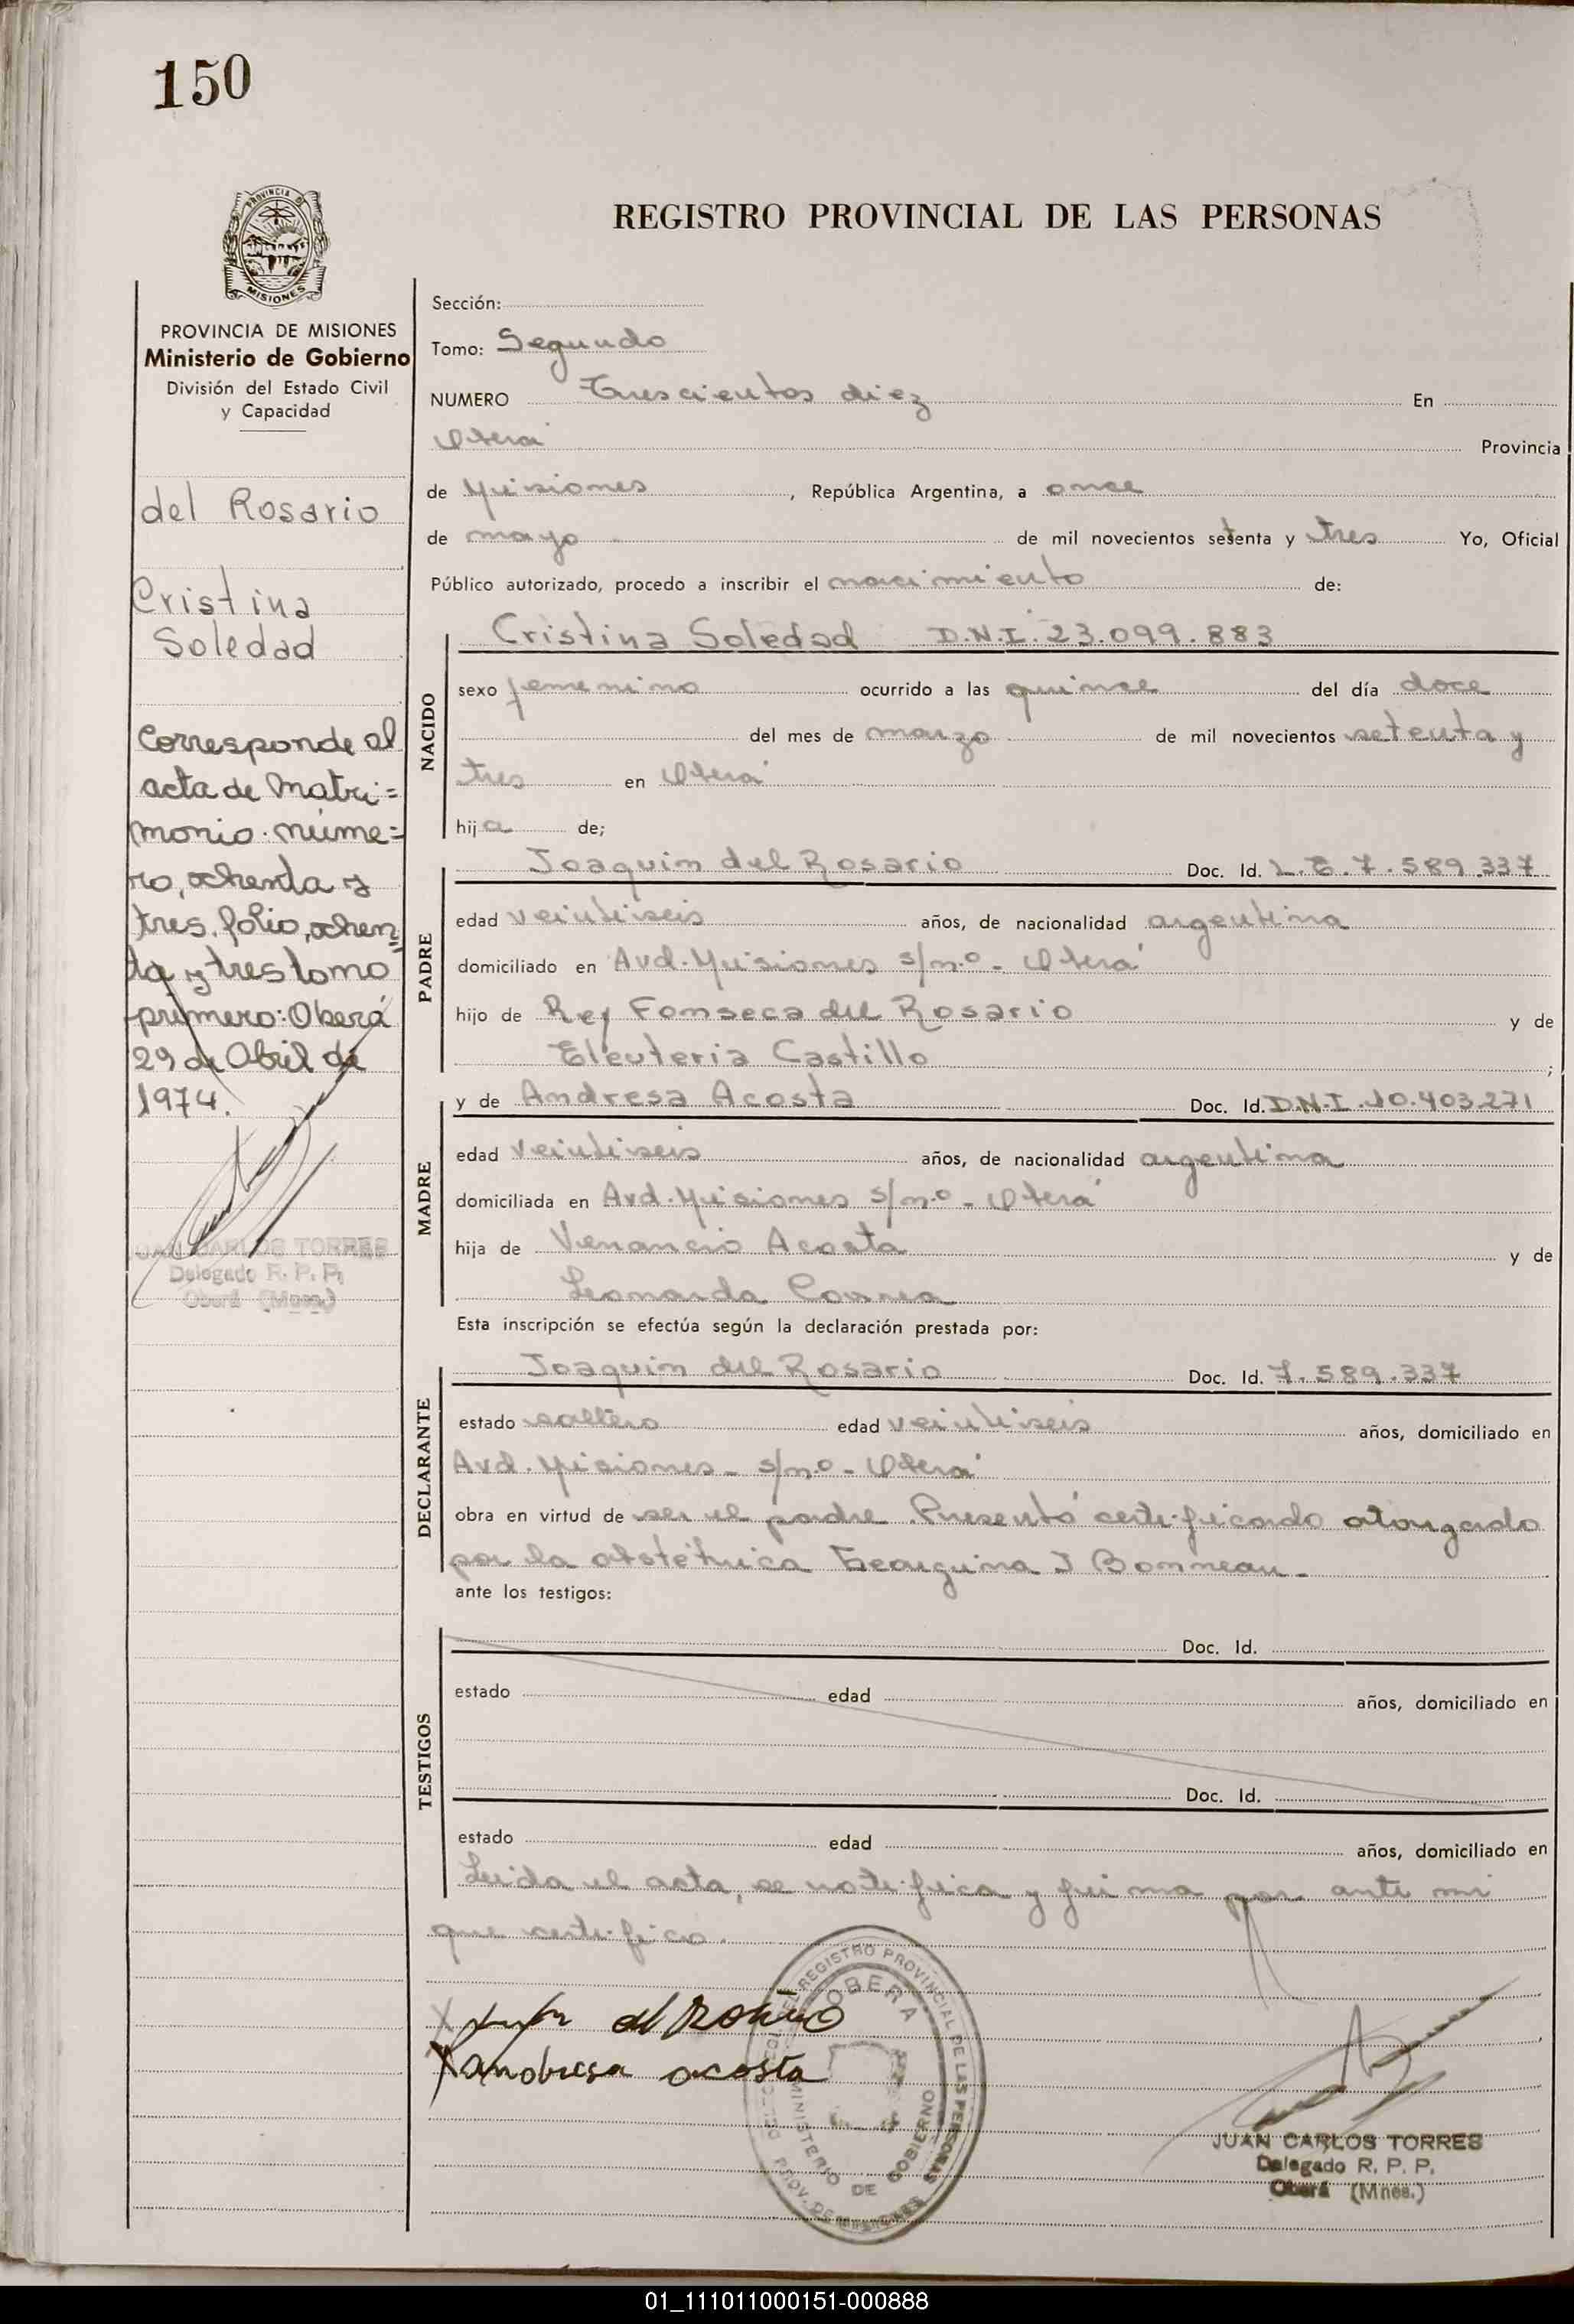 150
PROVINCIA DE
MISIONES
PROVINCIA DE MISIONES
Ministerio de Gobierno
División del Estado Civil
y Capacidad
del Rosario
Cristina
Soledad
Corresponde al
acta de Matri=
monio. núme=
ro, ochenta y
tres. folio, ochen=
ta y tres tomo
primero: Oberá
29 de Abril de
1974.
JUAN CARLOS TORRES
Delegado R. P. P.
Oberá (Mnes.)
REGISTRO PROVINCIAL DE LAS PERSONAS
Sección:
Tomo: Segundo
NUMERO Trescientos diez En
Oberá Provincia
de Misiones , República Argentina, a once
de mayo de mil novecientos setenta y tres Yo, Oficial
Público autorizado, procedo a inscribir el nacimiento de:
NACIDO
Cristina Soledad D.N.I. 23.099.883
sexo femenino ocurrido a las quince del día doce
del mes de marzo de mil novecientos setenta y
tres en Oberá
hija de;
PADRE
Joaquin del Rosario Doc. Id. L.E. 7.589.337
edad veintiseis años, de nacionalidad argentina
domiciliado en Avd. Misiones s/n.º - Oberá
hijo de Rey Fonseca del Rosario y de
Eleuteria Castillo ;
MADRE
y de Andresa Acosta Doc. Id. D.N.I. 10.403.271
edad veintiseis años, de nacionalidad argentina
domiciliada en Avd. Misiones s/n.º - Oberá
hija de Venancio Acosta y de
Leonarda Correa
Esta inscripción se efectúa según la declaración prestada por:
DECLARANTE
Joaquin del Rosario Doc. Id. 7.589.337
estado soltero edad veintiseis años, domiciliado en
Avd. Misiones - s/n.º - Oberá
obra en virtud de ser el padre. Presentó certificado otorgado
por la obstétrica Georgina J Bonneau -
ante los testigos:
TESTIGOS
Doc. Id.
estado edad años, domiciliado en
Doc. Id.
estado edad años, domiciliado en
Leida el acta, se notifica y firma por ante mi
que certifico.
del Rosario
andresa acosta
REGISTRO PROVINCIAL DE LAS PERSONAS
OBERA
MINISTERIO DE GOBIERNO
PROV. DE MISIONES
JUAN CARLOS TORRES
Delegado R. P. P.
Oberá (Mnes.)
01_111011000151-000888